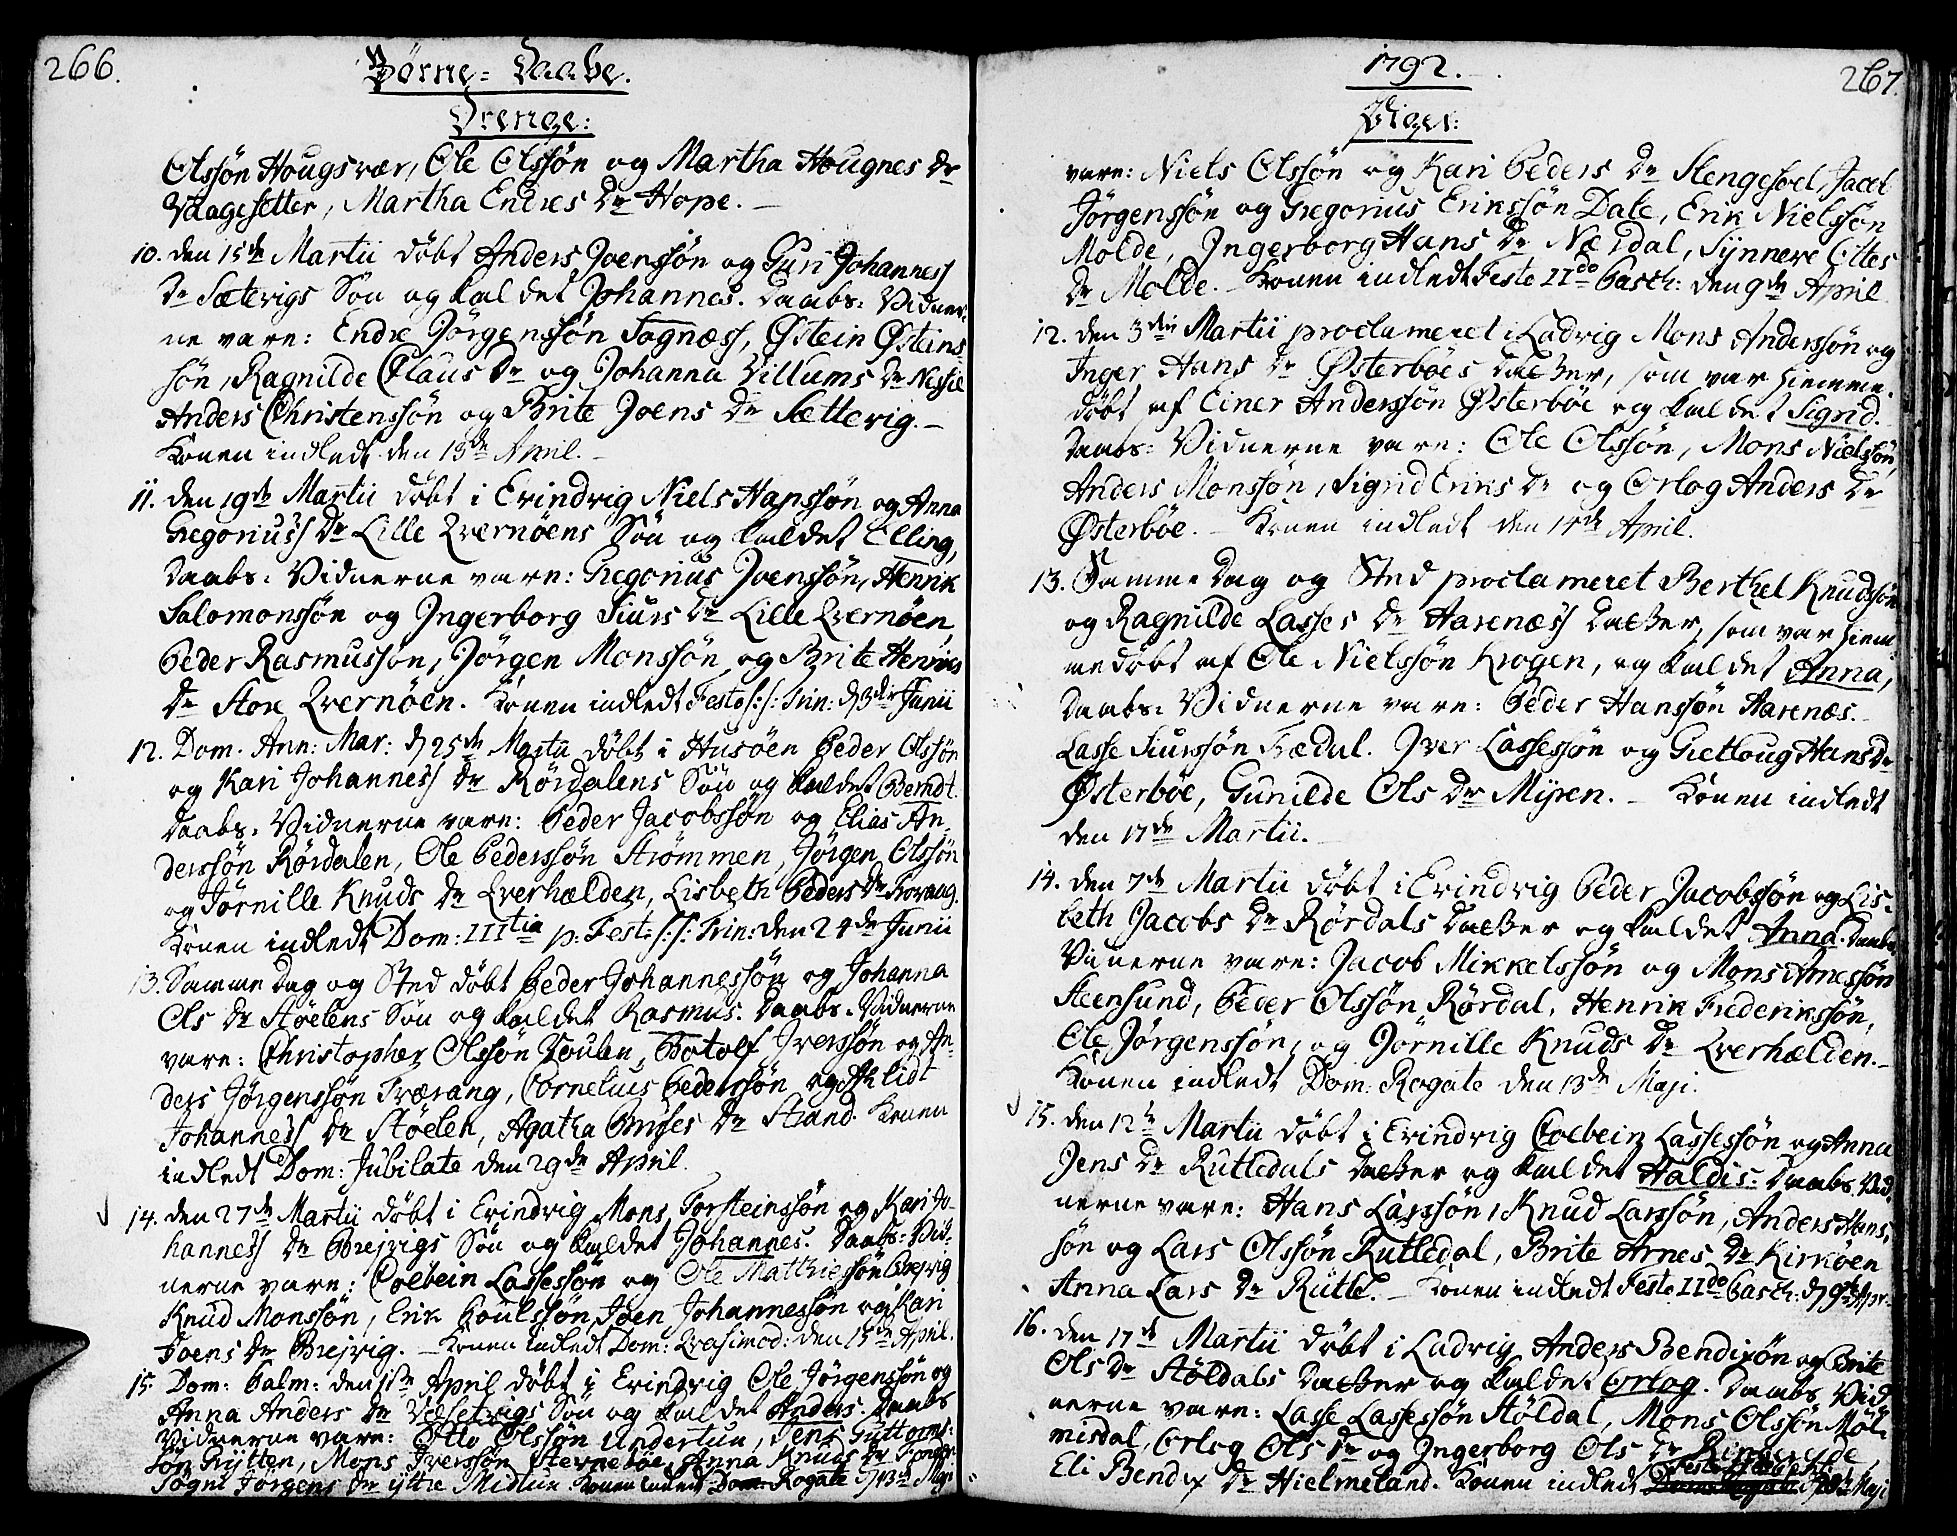 266.
Børne-Daabe.
Drenge:
Olssøn Hougsvær, Ole Olssøn og Martha Hougnes Dr
Vaagesetter, Martha Endres Dr Hope. —
10. den 15de Martii døbt Anders Joenssøn og Guri Johanness
Dr Sætevigs Søn og kaldet Johannes. Daabs-Vidner-
ne vare: Endre Jørgenssøn Sognæss, Østein Østeins-
søn, Ragnilde Claus Dr og Johanna Villums Dr
Anders Christenssøn og Brite Joens Dr Sættevig. —
Konen indledt den 15de April. —
11. den 19de Martii døbt i Evindvig Niels Hanssøn og Anna
Gregoriuss Dr Lille Qvernøens Søn og kaldet Elling,
Daabs-Vidnerne vare: Gregorius Joenssøn, Henrik
Salomonssøn og Ingerborg Siurs Dr Lille Qvernøen,
Peder Rasmussøn, Jørgen Monssøn og Brite Henriks
Dr Store Qvernøen. Konen indledt Festo s:s: Trin: d 3die Junii
12. Dom. Ann: Mar: d 25de Martii døbt i Husøen Peder Olssøn
og Kari Johanness Dr Rørdalens Søn og kaldet Berndt.
Daabs-Vidnerne vare: Peder Jacobssøn og Elias An-
derssøn Rørdalen, Ole Pederssøn Strømmen, Jørgen Olssøn
og Jørnille Knuds Dr Qverhælden, Lisbeth Peders Dr
Konen indledt Dom: IIItia p: Fest: s:s: Trin: den 24de Junii
13. Samme Dag og Sted døbt Peder Johannessøn og Johanna
Ols Dr Støelens Søn og kaldet Rasmus: Daabs-Vidnerne
vare: Christopher Olssøn Joulen, Botolf Iverssøn og An-
ders Jørgenssøn Trærang, Cornelius Pederssøn og
Johanness Dr Støelen, Agatha Dr Strand. Konen
indledt Dom: Jubilate den 29de April.
14. den 27de Martii døbt i Evindvig Mons Torsteinssøn og Kari Jo-
hanness Dr Brejvigs Søn og kaldet Johannes. Daabs-Vid-
nerne vare: Colbein Lassessøn og Ole Matthiessøn Brejvig
Knud Monssøn, Erik Poulssøn, Joen Johannessøn og Kari
Joens Dr Brejvig. — Konen indledt Dom: Qvasimod: den 15de April.
15. Dom: Palm: den 1ste April døbt i Evindvig Ole Jørgenssøn og
Anna Anders Dr Søn og kaldet Anders. Daabs
Vidnerne vare: Otto Olssøn Undertun, Jens Guttorms-
søn Rytten, Mons Iverssøn Sternebøe, Anna Knuds Dr
Jørgens Dr yttre Midtun. Konen indledt Dom: Rogate d 13de Maji
1792.
267.
Piger:
vare: Niels Olssøn og Kari Peders Dr Stengesoel, Jacob
Jørgenssøn og Gregorius Erikssøn Dale, Erik Nielssøn
Molde, Ingerborg Hans Dr Nærdal, Synneve Ottes
Dr Molde. — Konen indledt Festo IIdo Pasch: den 9de April
12. den 3die Martii proclameret i Ladvig Mons Anderssøn og
Inger Hans Dr Østerbøes Datter, som var hiemme-
døbt af Einer Anderssøn Østerbøe og kaldet Sigrid.
Daabs-Vidnerne vare: Ole Olssøn, Mons Nielssøn,
Anders Monssøn, Sigrid Eriks Dr og Orlog Anders Dr
Østerbøe. — Konen indledt den 14de April.
13. Samme Dag og Sted proclameret Berthel Knudssøn
og Ragnilde Lasses Dr Aarenæss Datter, som var hiem-
medøbt af Ole Nielssøn Krogen, og kaldet Anna,
Daabs-Vidnerne vare: Peder Hanssøn Aarenæs.
Lasse Siurssøn Trædal. Iver Lassessøn og Gietloug Hans Dr
Østerbøe, Gunilde Ols Dr Myren. — Konen indledt
den 17de Martii. —
14. den 7de Martii døbt i Evindvig Peder Jacobssøn og Lis-
beth Jacobs Dr Rørdals Datter og kaldet Anna. Daabs
Vidnerne vare: Jacob Mikkelssøn og Mons Arnessøn
Steensund, Peder Olssøn Rørdal, Henrik Frederikssøn,
Ole Jørgenssøn, og Jørnille Knuds Dr Qverhælden. —
Konen indledt Dom: Rogate den 13de Maji.
15. den 12te Martii døbt i Evindvig Colbein Lassessøn og Anna
Jens Dr Rutledals Datter og kaldet Haldis: Daabs Vid-
nerne vare: Hans Larssøn, Knud Larssøn, Anders Hans-
søn og Lars Olssøn Rutledal, Brite Arnes Dr Kirkøen
Anna Lars Dr Rutle. — Konen indledt Festo IIdo Pasch: d 9de Apr:
16. den 17de Martii døbt i Ladvig Anders Bendixøn og Brite
Ols Dr Støldals Datter og kaldet Orlog. Daabs Vid
nerne vare: Lasse Lassessøn Støldal, Mons Olssøn Møl-
misdal, Orlog Ols Dr og Ingerborg Ols Dr
Eli Bendix Dr Hielmeland. Konen indledt Maji